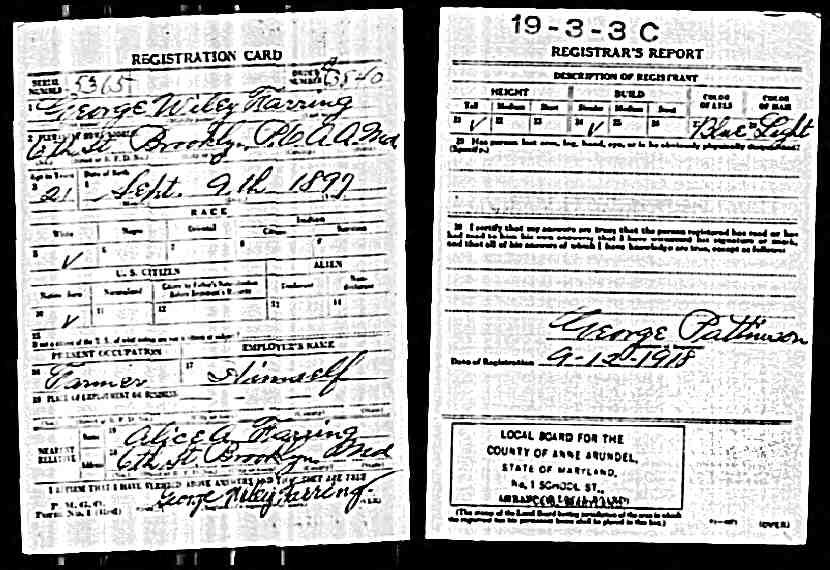 REGISTRATION CARD
SERIAL NUMBER 5365 ORDER NUMBER 3540
1 George Wiley Farring
6th St Brooklyn P.O. A.A. Md
Age in Years Date of Birth
3 21 4 Sept. 9th 1897
RACE
White Negro Oriental Indian
Citizen Noncitizen
5 ✓ 6 7 8 9
U. S. CITIZEN ALIEN
Native Born Naturalized Declarant Non-declarant
10 ✓ 11 12 13 14
15
PRESENT OCCUPATION EMPLOYER'S NAME
16 Farmer 17 Himself
18 PLACE OF EMPLOYMENT OR BUSINESS
NEAREST RELATIVE
Name 19 Alice A. Farring
Address 20 6th St. Brooklyn Md
I AFFIRM THAT I HAVE VERIFIED ABOVE ANSWERS AND THAT THEY ARE TRUE
P. M. G. O.
Form No. 1 (Red)
George Wiley Farring
19-3-3 C
REGISTRAR'S REPORT
DESCRIPTION OF REGISTRANT
HEIGHT BUILD COLOR OF EYES COLOR OF HAIR
Tall Medium Short Slender Medium Stout
21 ✓ 22 23 24 ✓ 25 26 27 Blue 28 Light
29 Has person lost arm, leg, hand, eye, or is he obviously physically disqualified?
(Specify.)
30 I certify that my answers are true; that the person registered has read or has
had read to him his own answers; that I have witnessed his signature or mark,
and that all of his answers of which I have knowledge are true, except as follows:
George Pattinson
Date of Registration 9-12-1918
LOCAL BOARD FOR THE
COUNTY OF ANNE ARUNDEL,
STATE OF MARYLAND,
No. 1 SCHOOL ST.,
(The stamp of the Local Board having jurisdiction of the area in which
the registrant has his permanent home shall be placed in this box.)
(OVER)